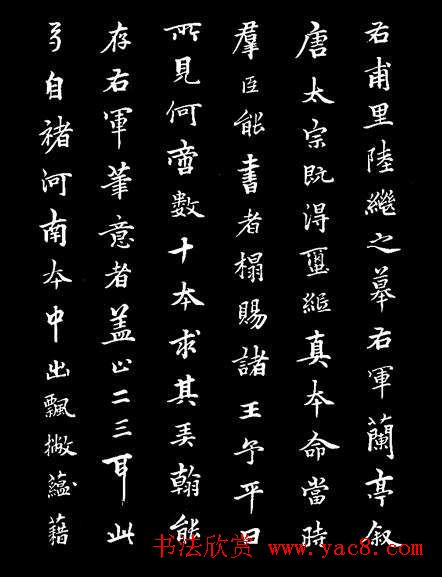 右甫里陸繼之摹右軍蘭亭叙
唐太宗既得璽紙真本命當時
羣臣能書者搨賜諸王予平日
所見何啻數十本求其弄翰能
存右軍筆意者蓋止二三耳此
弓自褚河南本中出飄撇蘊藉
书法欣赏 www.yac8.com